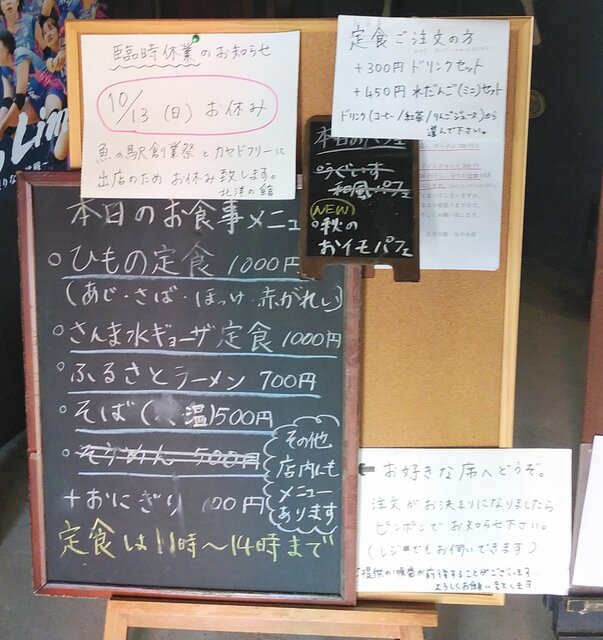 臨時休業のお知らせ
10/13（日）お休み
魚の駅創業祭とカヤドフリーに
出店のため お休み致します。
北淡の館
定食ご注文の方
+300円 ドリンクセット
+450円 水だんご(ミニ)セット
ドリンク(コーヒー/紅茶/りんごジュース)から
選んで下さい。
本日のパフェ
○うぐいす
和風パフェ
(NEW)
○秋の
おイモパフェ
本日のお食事メニュ
○ひもの定食 1000円
(あじ・さば・ほっけ・赤がれい)
○さんま水ギョーザ定食 1000円
○ふるさとラーメン 700円
○そば( 温)500円
○そうめん 500円
+おにぎり 00円
その他
店内にも
メニュー
あります
定食は11時〜14時まで
お好きな席へどうぞ。
注文がお決まりになりましたら
ピンポンでお知らせ下さい。
(レジでもお伺いできます)
ご提供の順番が前後することがございます…
よろしくお願い致します